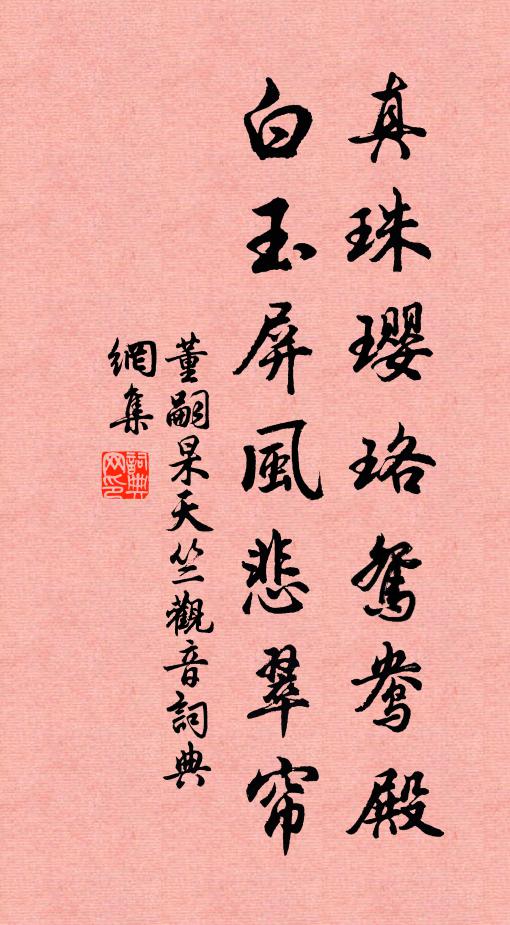 真珠瓔珞鴛鴦殿
白玉屏風悲翠帘
董嗣杲天竺觀音詞典
網集
詞典網印